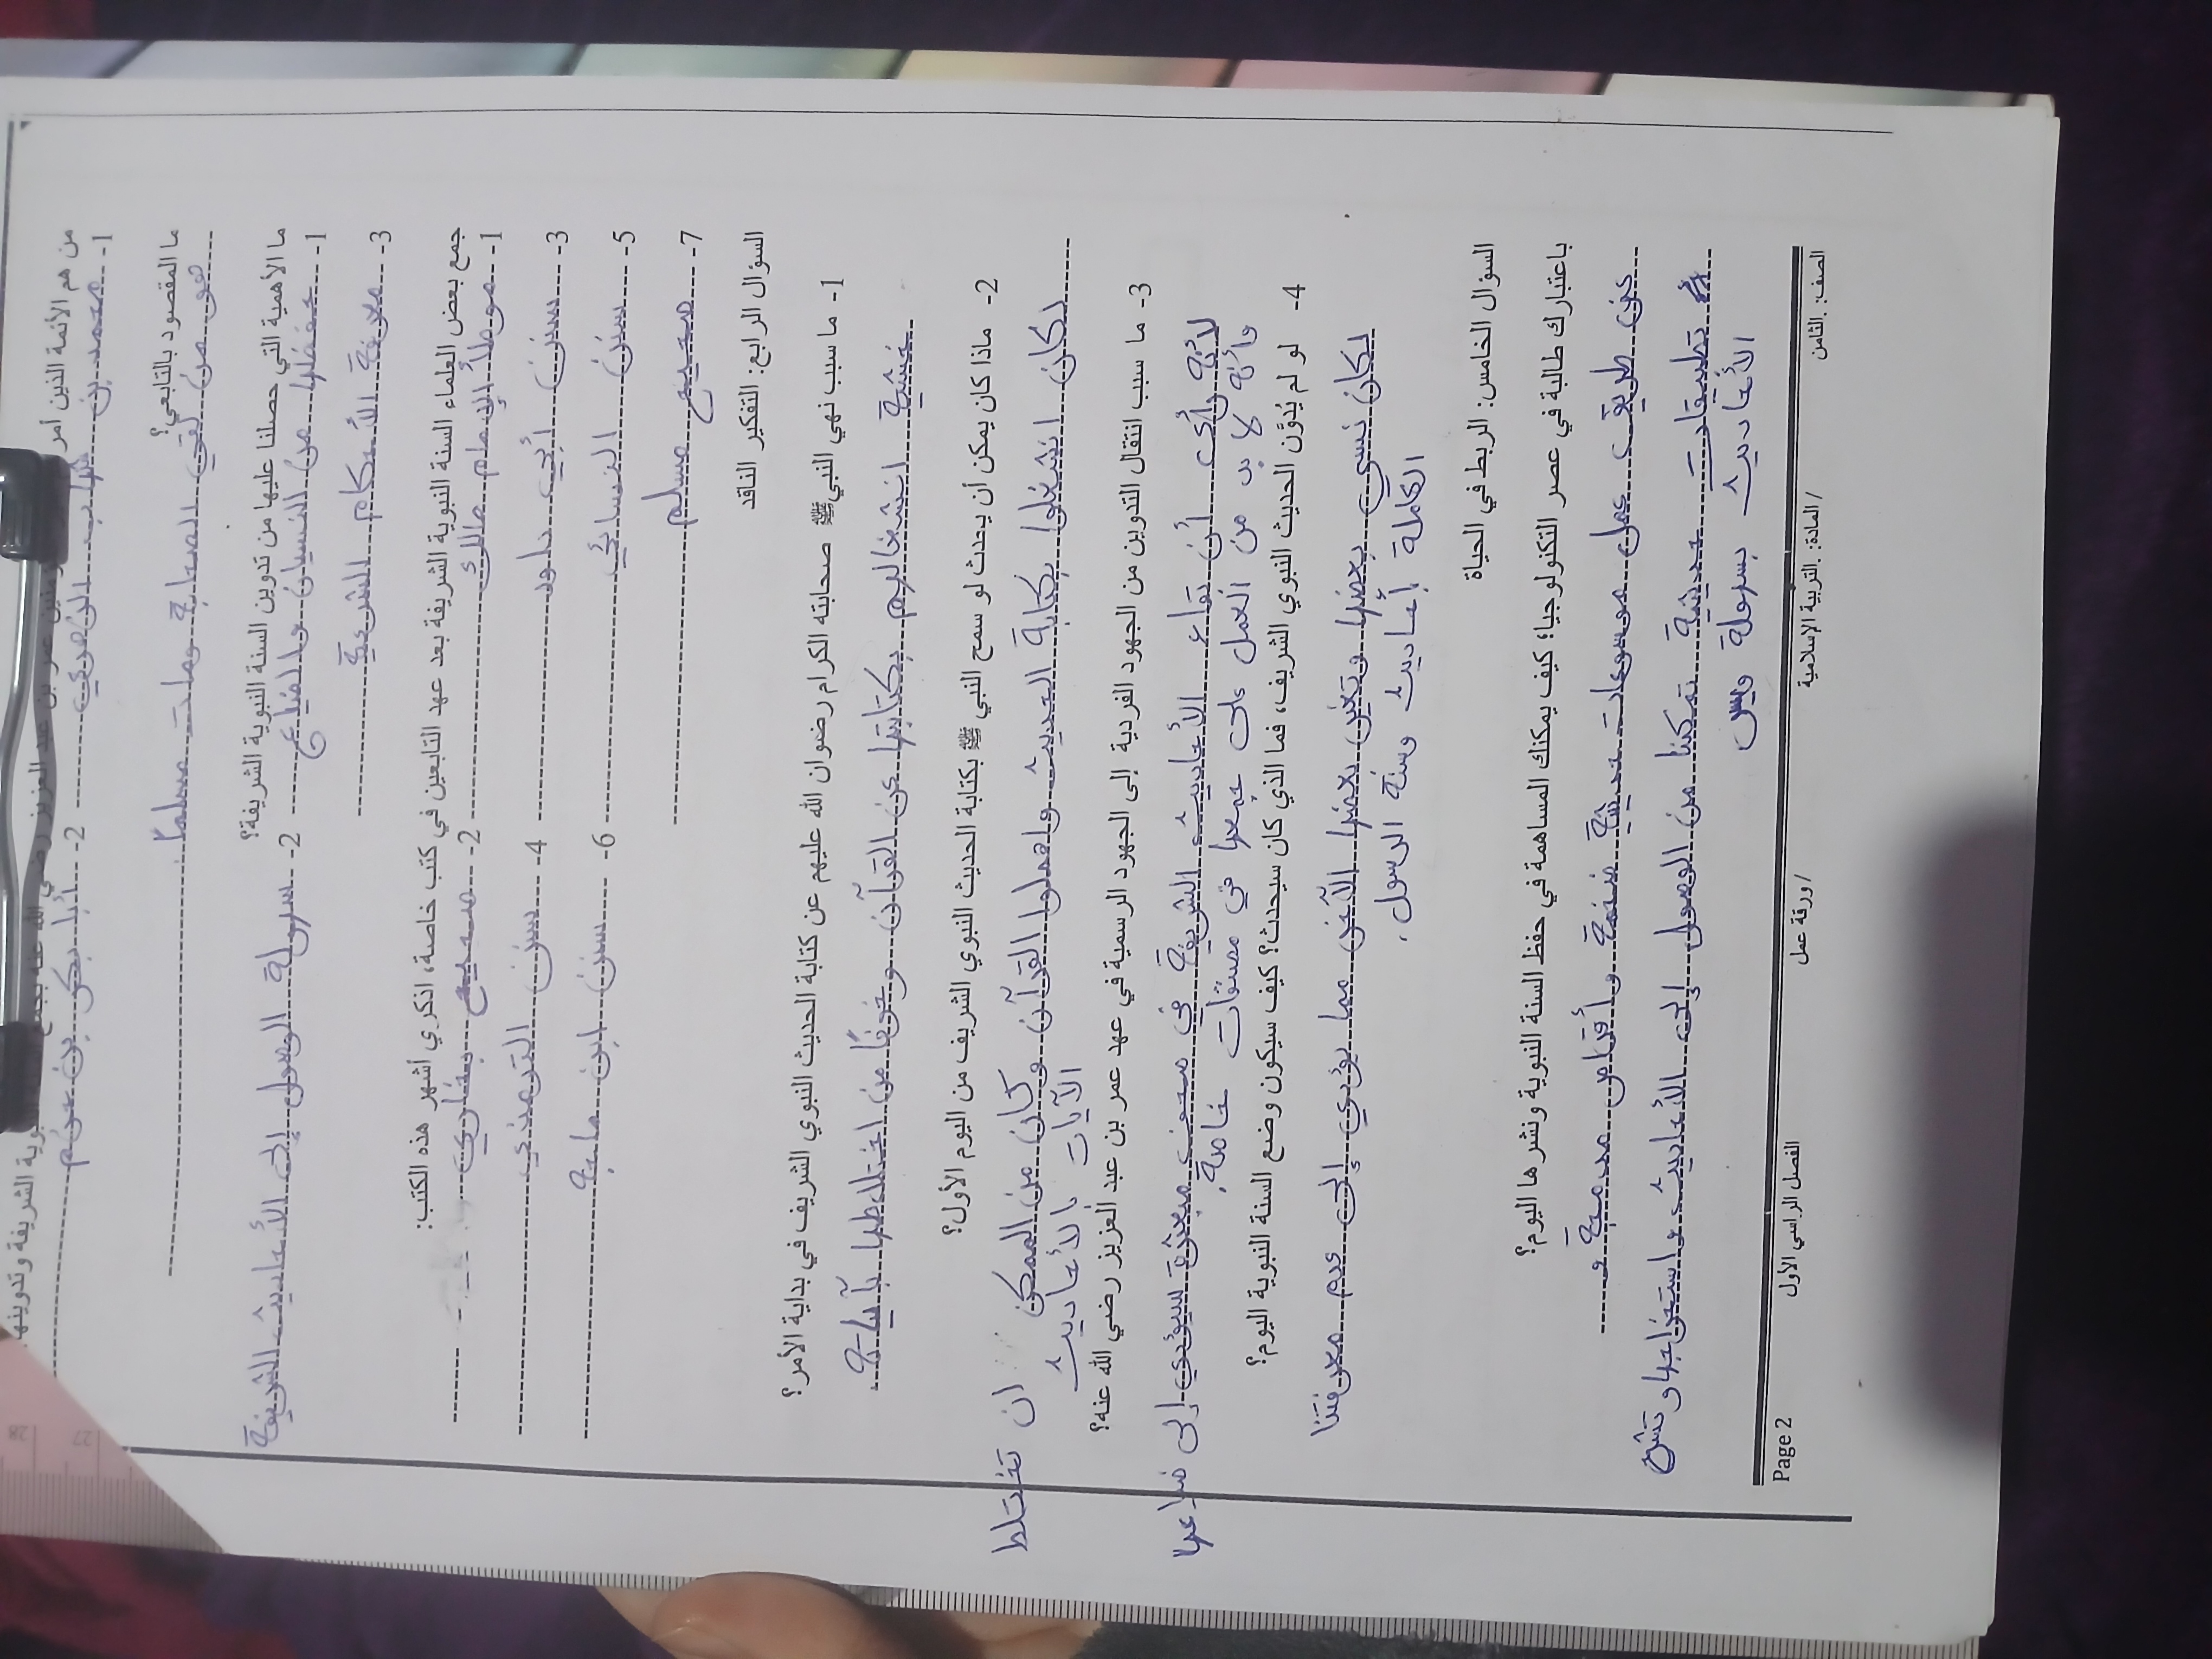 من هم الأئمة الذين أمر
الشريفة وتدوينها
1- محمد بن شهاب الزهري 2- أبا بكر بن حزم
ما المقصود بالتابعي؟
هو من لقي الصحابة ومات مسلمًا
ما الأهمية التي حصلنا عليها من تدوين السنة النبوية الشريفة؟
1- حفظها من النسيان والضياع 2- سهولة الوصول إلى الأحاديث الشريفة
3- معرفة الأحكام الشرعية
جمع بعض العلماء السنة النبوية الشريفة بعد عهد التابعين في كتب خاصة، اذكري أشهر هذه الكتب:
1- موطأ الإمام مالك 2- صحيح بخاري
3- سنن أبي داود 4- سنن الترمذي
5- سنن النسائي 6- سنن ابن ماجة
7- صحيح مسلم
السؤال الرابع: التفكير الناقد
1- ما سبب نهي النبي ﷺ صحابته الكرام رضوان الله عليهم عن كتابة الحديث النبوي الشريف في بداية الأمر؟
خشية انشغالهم بكتابتها عن القرآن وخوفًا من اختلاطها بآياته
2- ماذا كان يمكن أن يحدث لو سمح النبي ﷺ بكتابة الحديث النبوي الشريف من اليوم الأول؟
لكان انشغلوا بكتابة الحديث واهملوا القرآن وكان من الممكن ان تختلط
الآيات بالأحاديث
3- ما سبب انتقال التدوين من الجهود الفردية إلى الجهود الرسمية في عهد عمر بن عبد العزيز رضي الله عنه؟
لأنه رأى أن بقاء الأحاديث الشريفة في صحف مبعثرة سيؤدي إلى ضياعها
وأنه لا بد من العمل على جمعها في مصنفات خاصة.
4- لو لم يُدوَّن الحديث النبوي الشريف، فما الذي كان سيحدث؟ كيف سيكون وضع السنة النبوية اليوم؟
لكان نسي بعضها وتغير بعضها الآخر مما يؤدي إلى عدم معرفتنا
الكاملة أحاديث وسنة الرسول.
السؤال الخامس: الربط في الحياة
باعتبارك طالبة في عصر التكنولوجيا؛ كيف يمكنك المساهمة في حفظ السنة النبوية ونشرها اليوم؟
عن طريق عمل موسوعات حديثية ضخمة وأقراص مدمجة و
تطبيقات حديثية تمكنا من الوصول إلى الأحاديث واستخراجها و نشر
الأحاديث بسهولة ويسر
الصف: الثامن / المادة: التربية الإسلامية / ورقة عمل الفصل الدراسي الأول Page 2